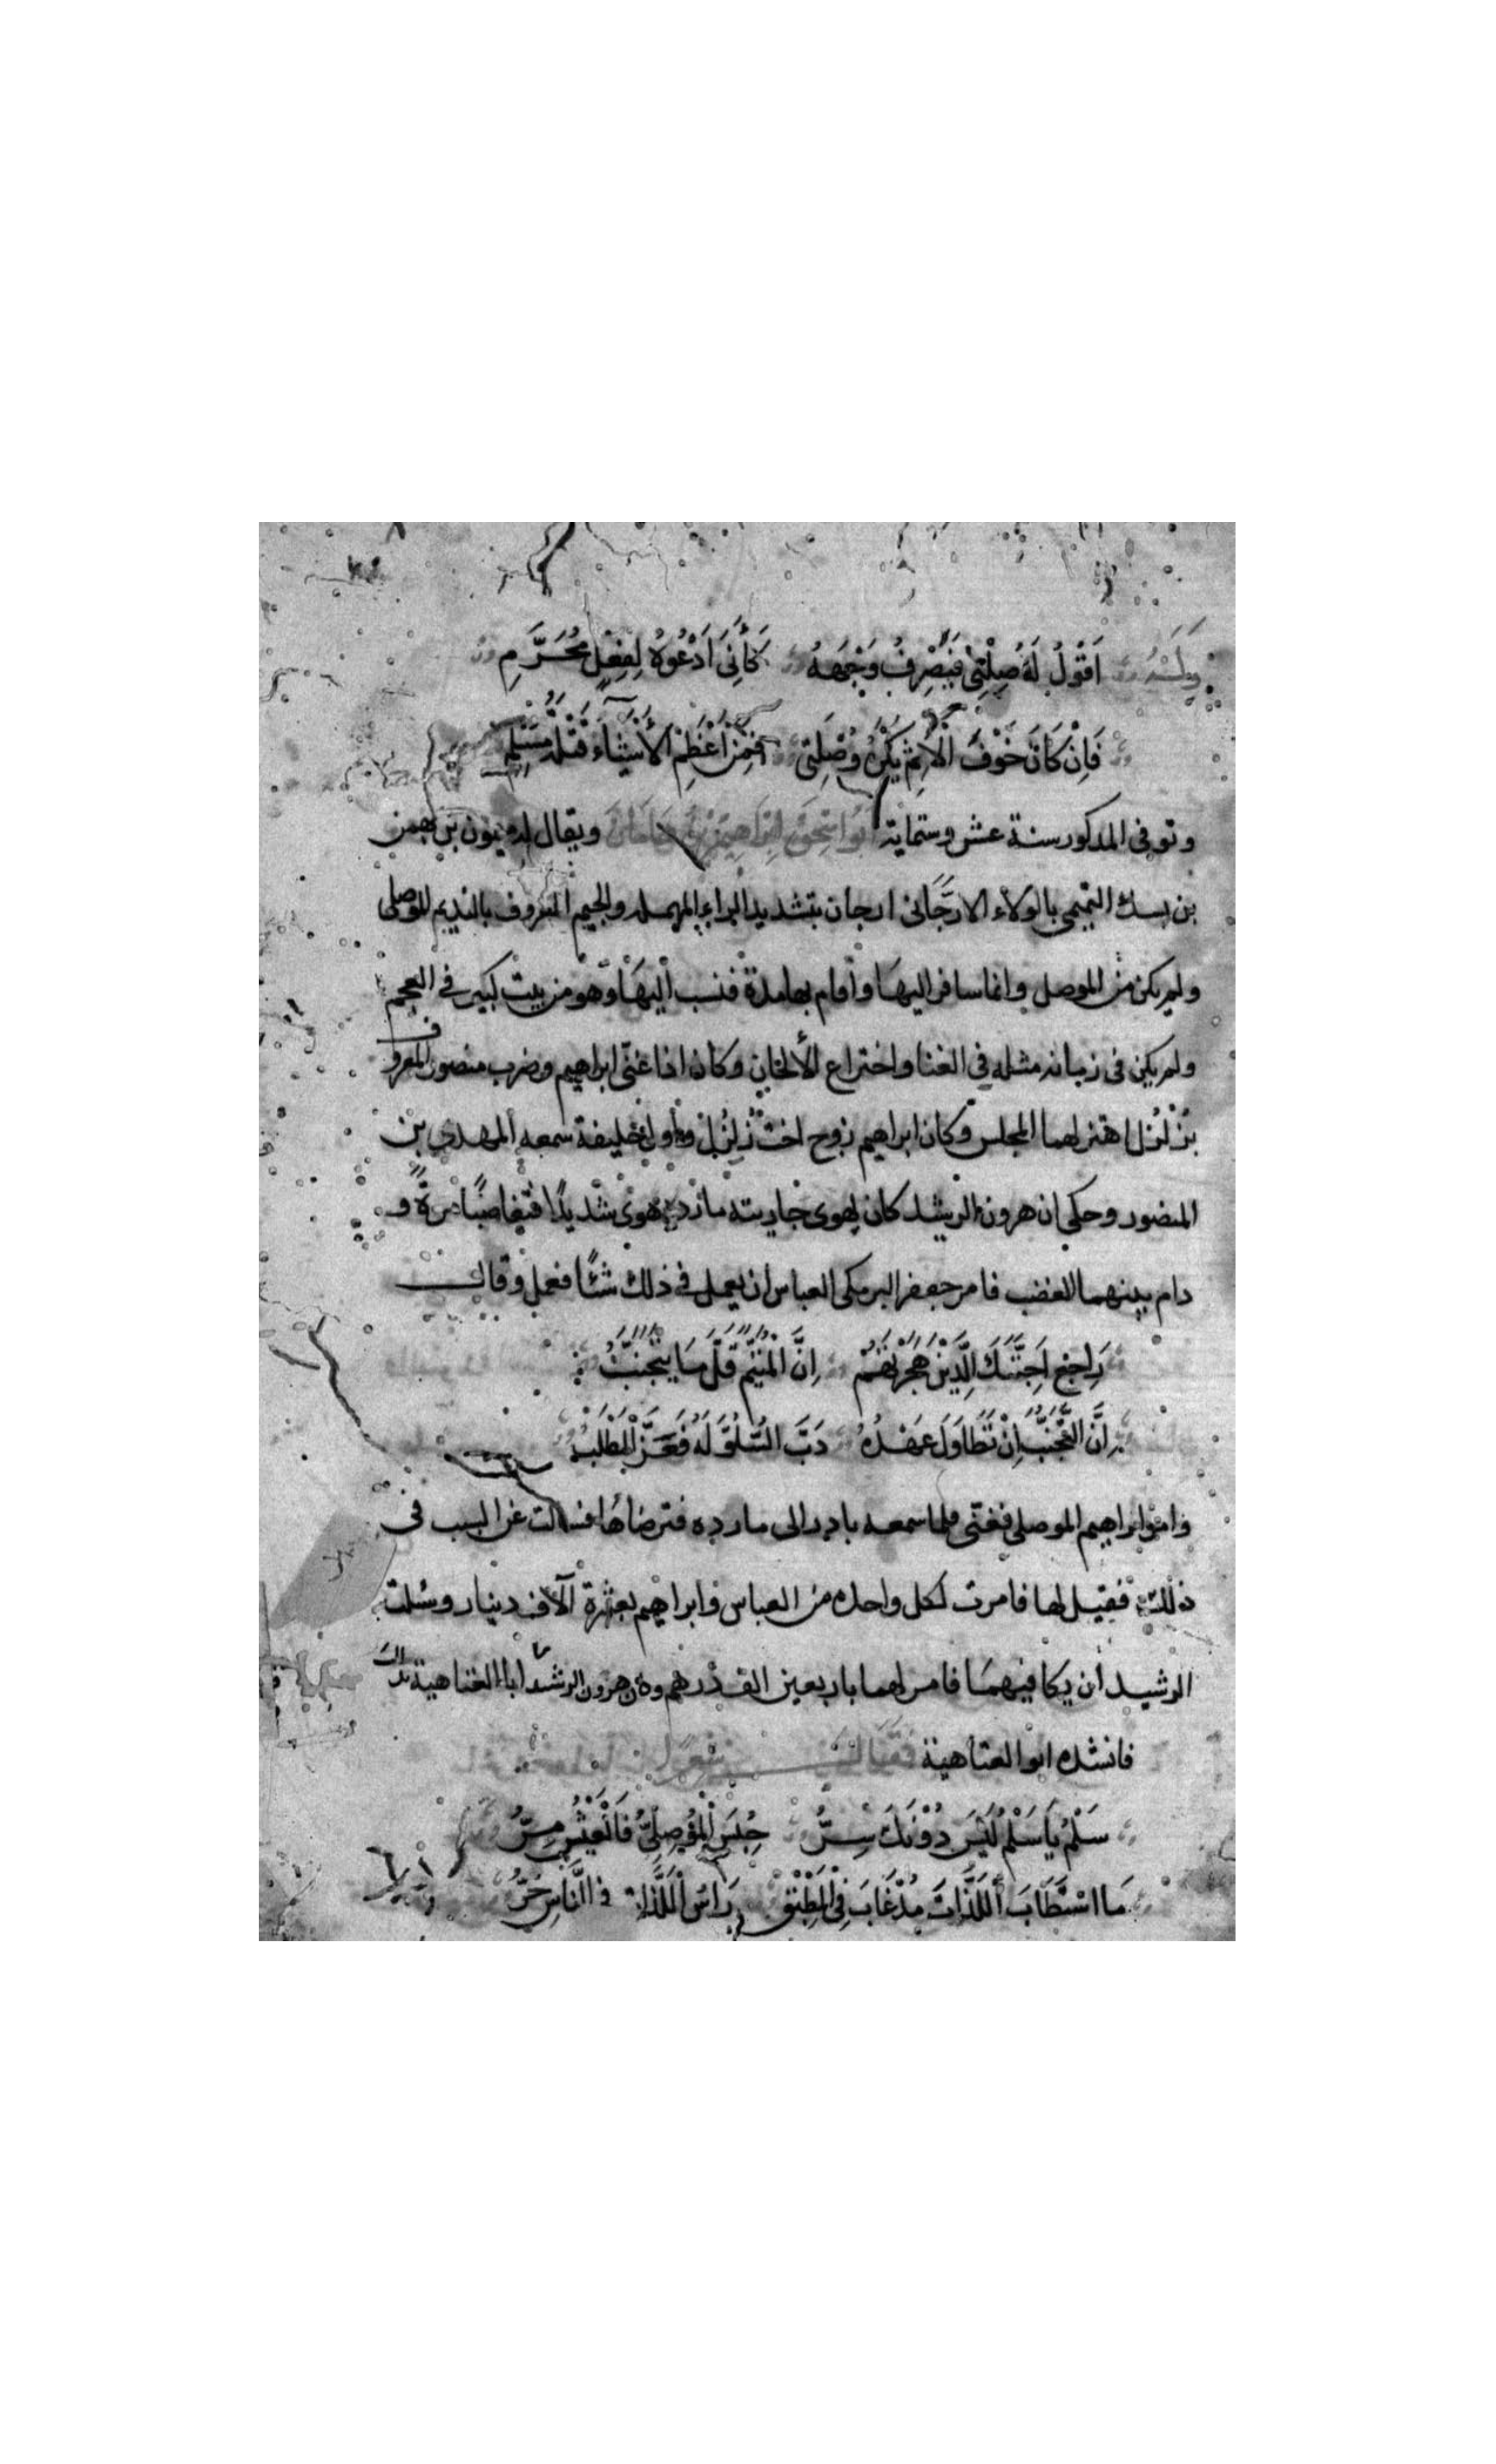 وله اَقُولُ لَهُ صِلْنِي فَيَصْرِفُ وَجْهَهُ كَأَنِّي اَدْعُوهُ لِفِعْلٍ مُحَرَّمِ
فَاِنْ كَانَ خَوْفَ الْاِثْمِ يَكْرَهُ وُصْلَتِي فَمِنْ اَعْظَمِ الْأَشْيَاءِ قَتْلَةُ مُسْلِمِ
وتوفى المذكور سنة عشر وستماية اَبُو اِسْحٰقَ اِبْرَاهِيمُ بْنُ مَاهَانَ ويقال له ميمون بن بهمن
بن بسك التميمى بالولاء الارَّجَانى ارجان بتشديد الراء المهمله والجيم المعروف بالنديم الموصلى
ولم يكن من الموصل وانما سافر اليهَا وأقام بها مدة فنسب أليهَا وَهو من بيت كبير فى العجم
ولم يكن فى زمانه مثله فى الغنا واختراع الألحان وكان اذا غنّى ابراهيم وضرب منصور المعروف
بزلزل اهتز لهما المجلس وكان ابراهيم زوج اخت زلزل وأول خليفة سمعه المهدى بن
المنصور وحكى ان هرون الرشيد كان يهوى جاريته مارده هوىً شديدًا فتغاضبَا مرةً و
دام بينهما الغضب فامر جعفر البرمكى العباس ان يعمل فى ذلك شئًا فعمل وقال
رَاجِعْ اَحِبَّتَكَ الَّذِينَ هَجَرْتَهُمْ اِنَّ الْمُتَيَّمَ قَلَّ مَا يَتَجَنَّبُ
اِنَّ التَّجَنُّبَ اِنْ تَطَاوَلَ عَهْدُهُ دَبَّ السُّلُوُّ لَهُ فَعَزَّ الْمَطْلَبُ
وامر ابراهيم الموصلى فغنّى فلما سمعه بادر الى مارده فترضاهَا فسألت عن السبب فى
ذلك فقيل لها فامرت لكل واحد من العباس وابراهيم بعشرة آلاف دينار وسئلت
الرشيد أن يكافيهمَا فامر لهما باربعين الف درهم وكان هرون الرشيد ابا العتاهية
فانشده ابو العتاهية فَقَالَ شعر
سَلْمُ يَا سَلْمُ لَيْسَ دُوْنَكَ سِرُّ حُبِسَ الْمَوْصِلِيُّ فَالْعَيْشُ مُرُّ
مَا اسْتَطَابَ اللَّذَّاتِ مُذْ غَابَ فِي الْمُطْبِقِ رَاسُ اللَّذَّاتِ فِي النَّاسِ حُرُّ